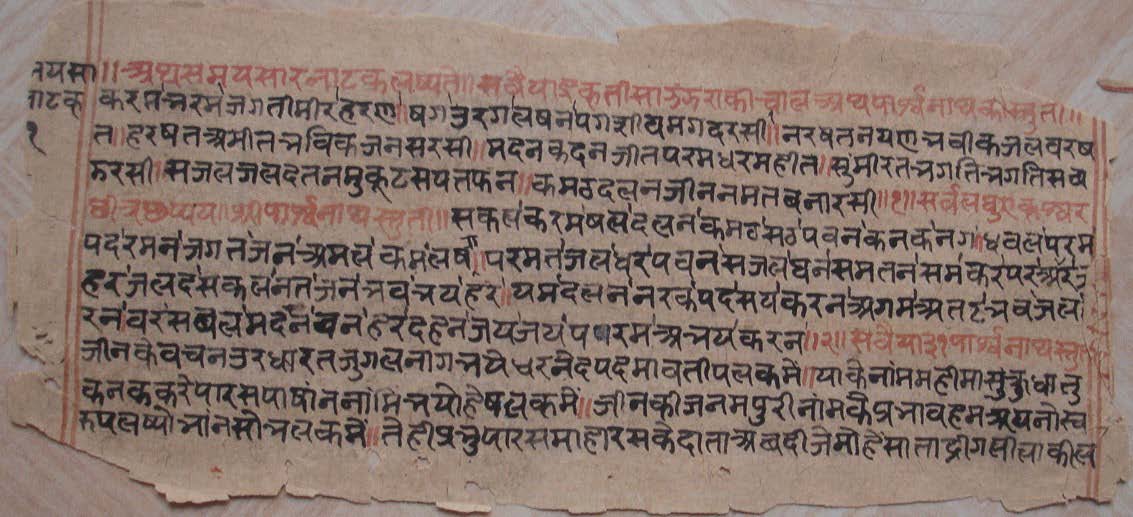 ॥अथ समयसार नाटक लष्यते॥ सवैया इकतीसा अथ पार्श्वनाथ की स्तुत॥
करम भरम जग तीमीर हरण॥ षग उरग लषन पग सीव मग दरसी॥ नरषत नयण भवीक जल वरष
त॥ हरषत अमीत भविक जन सरसी॥ मदन कदन जीत परम धरम हीत॥ सुमीरत भगति भगति सब
डरसी॥ सजल जलद तन मुकूट सपत फन॥ कमठ दलन जीन नमत बनारसी॥१॥ सर्व लघु एक अक्षर
छप्पय॥ श्री पार्श्वनाथ स्तुती॥ सकल करम षल दलन कमठ सठ पवन कनक नग॥ धवल परम
पद रमन जगत जन अमल कमल षग॥ परमत जलधर पवन सजल घन सम तन समकर पर अघ
हर जलद सकल नत जन भव भय हर॥ यम दलन नरक पद सय करन अगम अतट भव जल
रन वर सबल मदन बन हर दहन जय जय परम अभय करन॥२॥ सवैया ३१ पार्श्वनाथ स्तु
जीनकै वचन उर धारत जुगल नाग भये धरनेद पदमावती पलकमै॥ याकै नांम महीमा सु कुधातु
कनक करै पारस पाषांन नांमि भयो है षलकमै॥ जीनकी जनमपुरी नांमकै प्रभाव हम अपनो स्व
रुप लष्यो भांनसो भलकमै॥ तेही प्रभु पारस महारसके दाता अब दीजै मोहै साता द्रीग लीला की ल